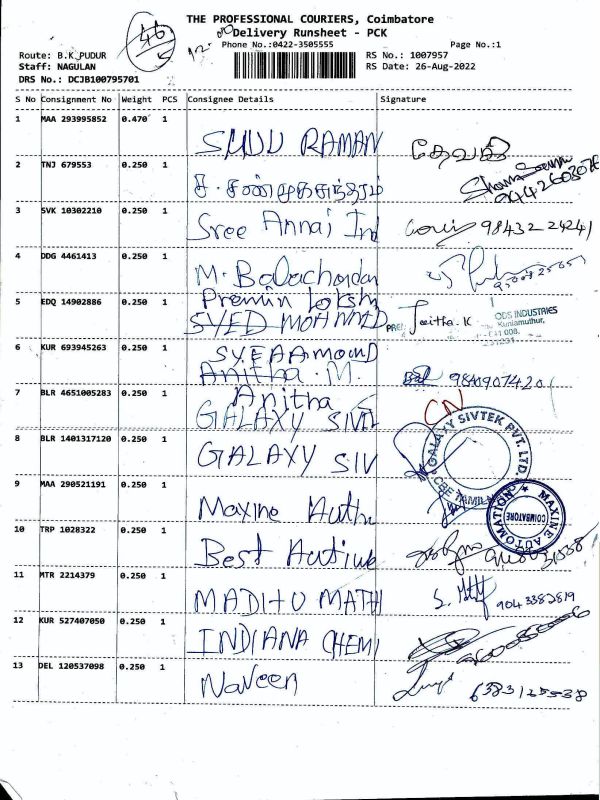 THE PROFESSIONAL COURIERS, Coimbatore
46
Delivery Runsheet - PCK
Phone No.:0422-3505555 Page No.:1
Route: B.K_PUDUR RS No.: 1007957
Staff: NAGULAN RS Date: 26-Aug-2022
DRS No.: DCJB100795701
S No Consignment No Weight PCS Consignee Details Signature
1 MAA 293995852 0.470 1
RAMAN தேவகி
2 TNJ 679553 0.250 1
ச. சண்முகசுந்தரம்
3 SVK 10302210 0.250 1
Sree Annai Ind 98432 24241
4 DDG 4461413 0.250 1
M. Balachandar
5 EDQ 14902886 0.250 1 Premin
SYED MOHAMMED K ODS INDUSTRIES
Kuniamuthur,
6 KUR 693945263 0.250 1
Anitha. M. 9840907420
7 BLR 4651005283 0.250 1 Anitha CN
GALAXY SIVT
8 BLR 1401317120 0.250 1 GALAXY SIVTEK PVT. LTD.
GALAXY SIV CBE TAMIL
9 MAA 290521191 0.250 1
Maxine Auth MAXINE AUTOMATION COIMBATORE
10 TRP 1028322 0.250 1
Best
11 MTR 2214379 0.250 1
MATH S. 9043382819
12 KUR 527407050 0.250 1
INDIANA CHEMI
13 DEL 120537098 0.250 1
Naveen 6383125538